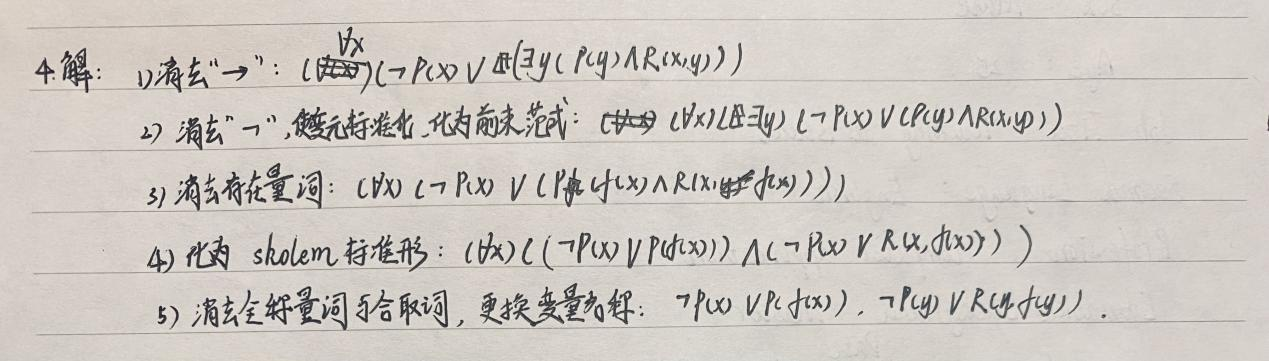 4.解: 1)消去"→": (∀x)(¬P(x)∨(∃y(P(y)∧R(x,y)))
2) 消去"¬",使变元标准化,化为前束范式: (∀x)(∃y)(¬P(x)∨(P(y)∧R(x,y)))
3) 消去存在量词: (∀x)(¬P(x)∨(P(f(x)∧R(x,f(x))))
4) 化为 skolem 标准形: (∀x)((¬P(x)∨P(f(x)))∧(¬P(x)∨R(x,f(x))))
5) 消去全称量词与合取词, 更换变量名称: ¬P(x)∨P(f(x)), ¬P(y)∨R(y,f(y)).